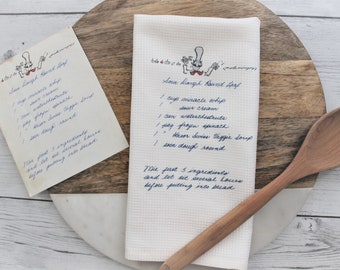 Sour Dough Round Loaf
1 cup miracle whip
1 " sour cream
1 can waterchestnuts
1 pkg frozen spinach
1 " Knorr Swiss Veggie Soup
1 sour dough round
Mix first 5 ingredients
and let set several hours
before putting into bread
Sour Dough Round Loaf
1 cup miracle whip
1 " sour cream
1 can waterchestnuts
1 pkg frozen spinach
1 " Knorr Swiss Veggie Soup
1 sour dough round
Mix first 5 ingredients
and let set several hours
before putting into bread